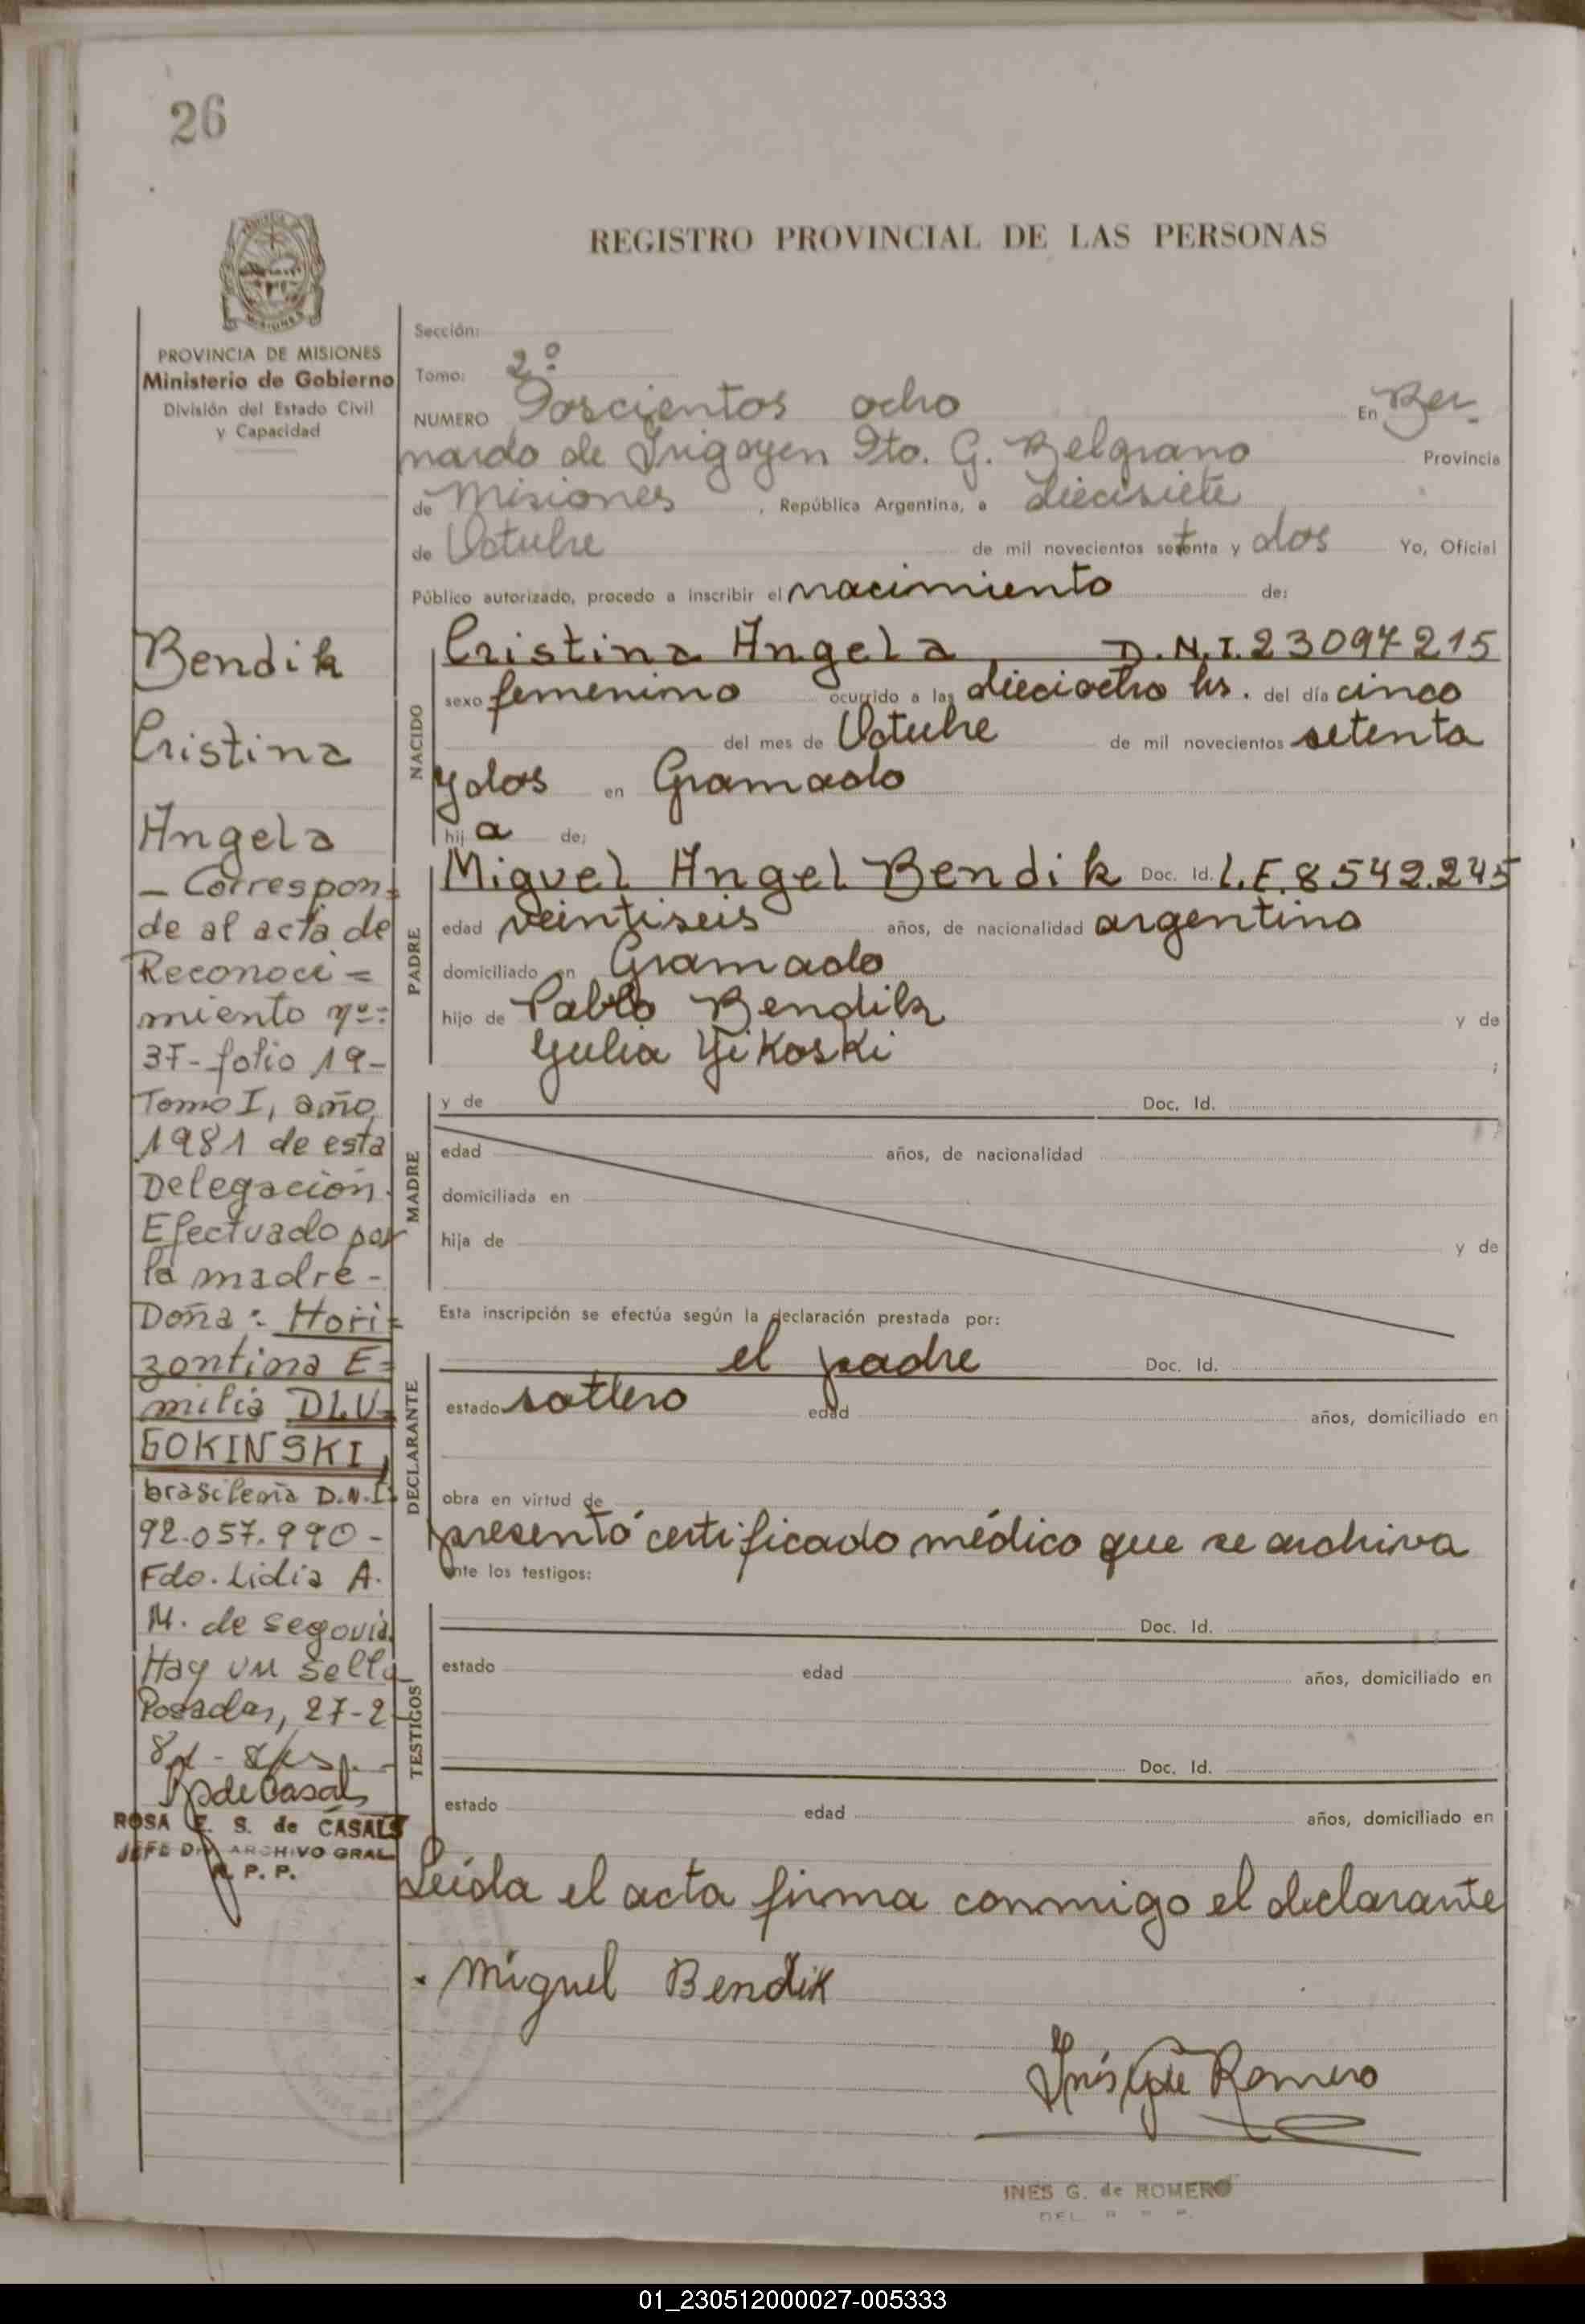 26
REGISTRO PROVINCIAL DE LAS PERSONAS
MISIONES
PROVINCIA DE MISIONES
Ministerio de Gobierno
División del Estado Civil
y Capacidad
Bendik
Cristina
Angela
- Correspon=
de al acta de
Reconoci=
miento nº:
37-folio 19-
Tomo I, año
1981 de esta
Delegación.
Efectuado por
la madre-
Doña: Hori=
zontina E=
milia DLU=
GOKINSKI,
brasileña D.N.I.
92.057.990-
Fdo. Lidia A.
M. de Segovia.
Hay un sello
Posadas, 27-2-
81-
ROSA E. S. de CASALS
JEFE DIV ARCHIVO GRAL
R. P. P.
Sección:
Tomo: 2º
NUMERO Doscientos ocho En Ber-
nardo de Irigoyen Dto. G. Belgrano Provincia
de Misiones, República Argentina, a diecisiete
de Octubre de mil novecientos setenta y dos Yo, Oficial
Público autorizado, procedo a inscribir el nacimiento de:
NACIDO
Cristina Angela D.N.I. 23097215
sexo femenimo ocurrido a las dieciocho hs. del día cinco
del mes de Octubre de mil novecientos setenta
y dos en Gramado
hija de;
PADRE
Miguel Angel Bendik Doc. Id. L.E. 8542.245
edad veintiseis años, de nacionalidad argentino
domiciliado en Gramado
hijo de Pablo Bendik y de
Yulia Yikoski ;
MADRE
y de Doc. Id.
edad años, de nacionalidad
domiciliada en
hija de y de
Esta inscripción se efectúa según la declaración prestada por:
DECLARANTE
el padre Doc. Id.
estado soltero edad años, domiciliado en
obra en virtud de
presentó certificado médico que se archiva
ante los testigos:
TESTIGOS
Doc. Id.
estado edad años, domiciliado en
Doc. Id.
estado edad años, domiciliado en
Leída el acta firma conmigo el declarante
. Miguel Bendik
Inés Romero
INES G. de ROMERO
DEL. R. P. P.
01_230512000027-005333